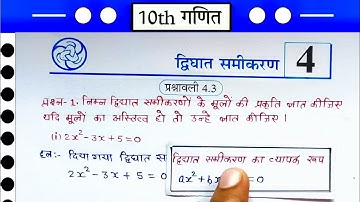 10th गणित
द्विघात समीकरण 4
प्रश्नावली 4.3
प्रश्न-1. निम्न द्विघात समीकरणों के मूलों की प्रकृति ज्ञात कीजिए
यदि मूलों का अस्तित्व हो तो उन्हें ज्ञात कीजिए।
(i) 2x²-3x+5=0
हल:- दिया गया द्विघात स
2x²-3x+5=0
द्विघात समीकरण का व्यापक रूप
ax²+bx =0